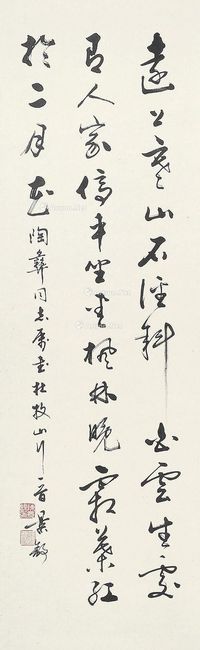 遠上寒山石徑斜白雲生處
有人家停車坐愛楓林晚霜葉紅
於二月花陶彝同志屬書杜牧山行一首